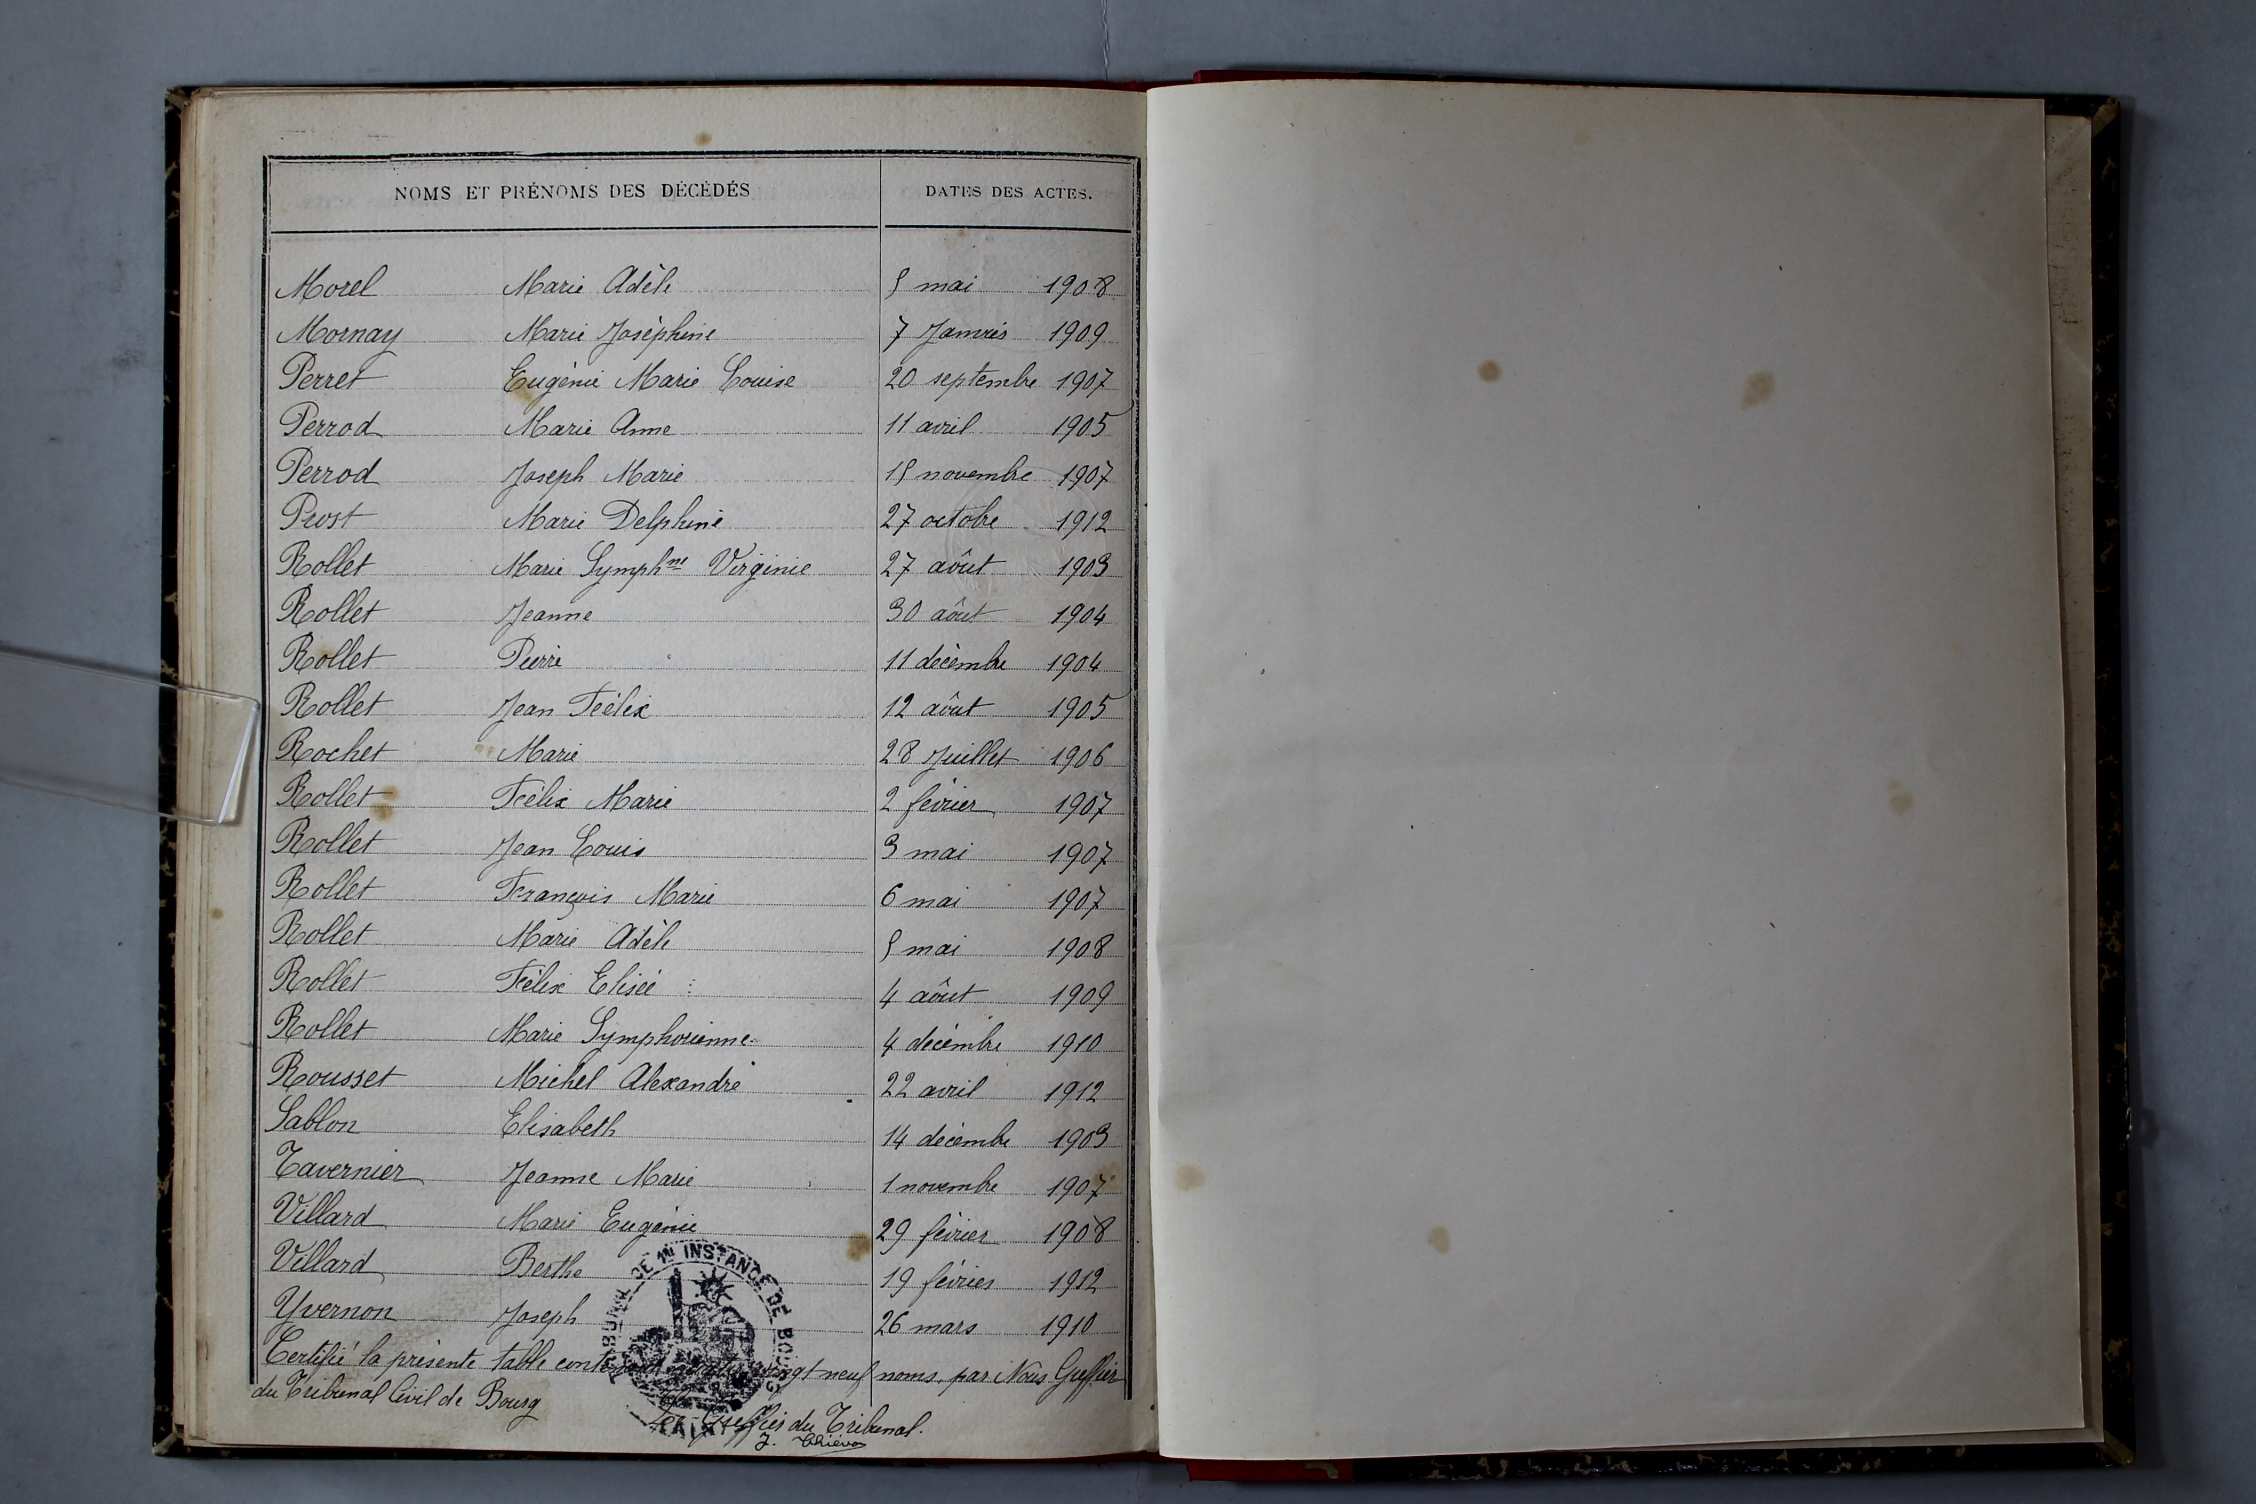 NOMS ET PRÉNOMS DES DÉCÉDÉS DATES DES ACTES.
Morel Marie Adèle 5 mai 1908
Mornay Marie Joséphine 7 Janvier 1909
Perret Eugénie Marie Louise 20 septembre 1907
Perrod Marie Anne 11 avril 1905
Perrod Joseph Marie 15 novembre 1907
Prost Marie Delphine 27 octobre 1912
Rollet Marie Symphne Virginie 27 août 1903
Rollet Jeanne 30 août 1904
Rollet Pierre 11 décembre 1904
Rollet Jean Félix 12 août 1905
Rochet Marie 28 Juillet 1906
Rollet Félix Marie 2 février 1907
Rollet Jean Louis 3 mai 1907
Rollet François Marie 6 mai 1907
Rollet Marie Adèle 5 mai 1908
Rollet Félix Elisée 4 août 1909
Rollet Marie Symphorienne 4 décembre 1910
Rousset Michel Alexandre 22 avril 1912
Sablon Elisabeth 14 décembre 1903
Tavernier Jeanne Marie 1 novembre 1907
Villard Marie Eugénie 29 février 1908
Villard Berthe 19 février 1912
Yvernon Joseph 26 mars 1910
TRIBUNAL DE 1RE INSTANCE DE BOURG
Certifié la présente table contenant quatre vingt neuf noms, par Nous Greffier
du Tribunal Civil de Bourg
Le Greffier du Tribunal.